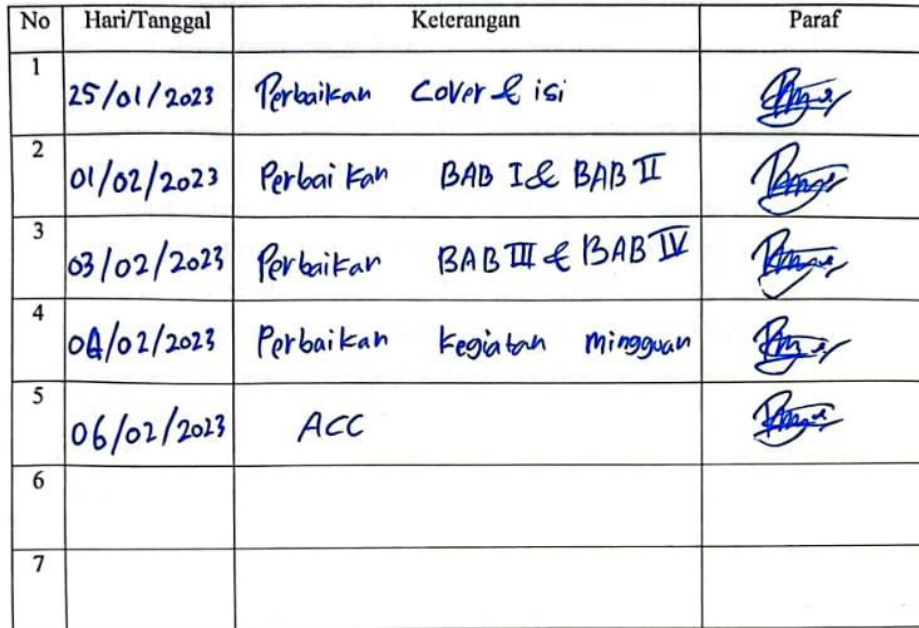 No Hari/Tanggal Keterangan Paraf
1 25/01/2023 Perbaikan Cover & isi
2 01/02/2023 Perbaikan BAB I & BAB II
3 03/02/2023 Perbaikan BAB III & BAB IV
4 04/02/2023 Perbaikan kegiatan mingguan
5 06/02/2023 ACC
6
7